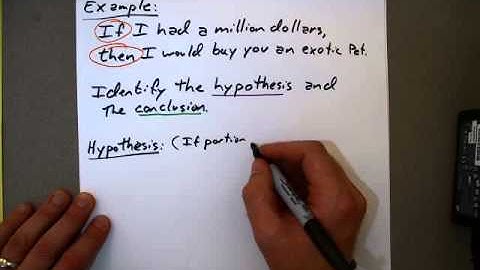 Example:
If I had a million dollars,
then I would buy you an exotic Pet.
Identify the hypothesis and
The conclusion.
Hypothesis: (If portion